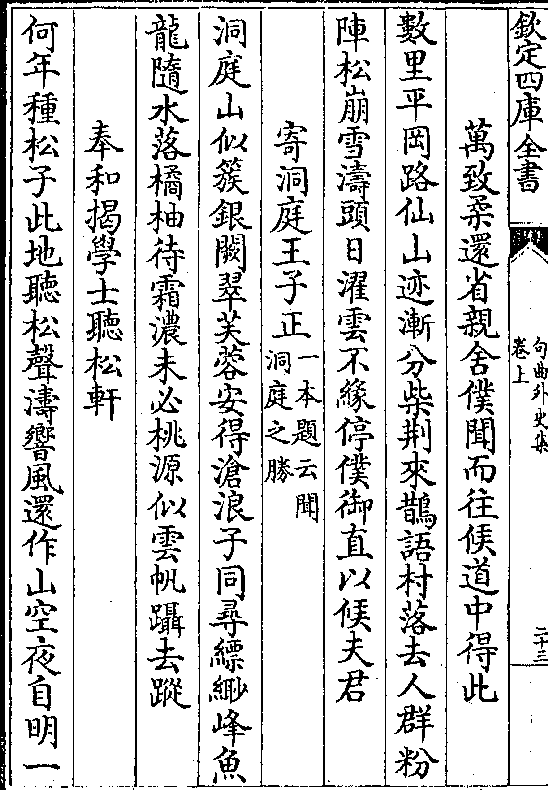 欽定四庫全書
句曲外史集
卷上
二十三
萬致柔還省親舍僕聞而往候道中得此
數里平岡路仙山迹漸分柴荆來鵲語村落去人群粉
陣松崩雪濤頭日濯雲不緣停僕御直以候夫君
寄洞庭王子正一本題云聞洞庭之勝
洞庭山似簇銀闕翠芙蓉安得滄浪子同尋縹緲峰魚
龍隨水落橘柚待霜濃未必桃源似雲帆躡去蹤
奉和揭學士聽松軒
何年種松子此地聽松聲濤響風還作山空夜自明一